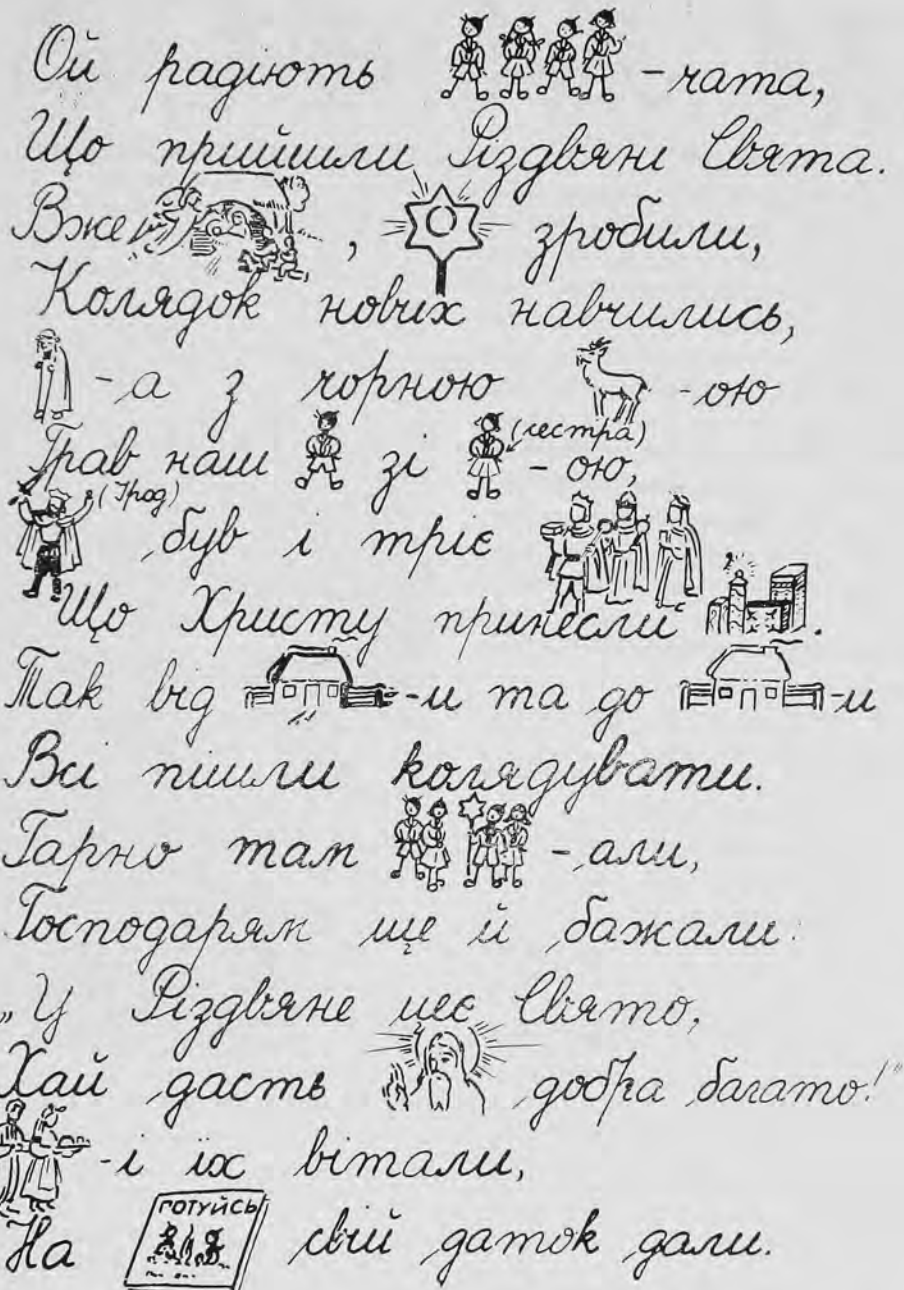 Ой радіють -чата,
Що прийшли Різдвяні Свята.
Вже , зробили,
Колядок нових навчились,
-а з чорною -ою
Грав наш зі (сестра) -ою,
(Ірод) був і тріє
Що Христу принесли .
Так від -и та до -и
Всі пішли колядувати.
Гарно там -али,
Господарям ще й бажали:
„У Різдвяне цеє Свято,
Хай дасть добра багато!"
-і їх вітали,
На ГОТУЙСЬ свій даток дали.